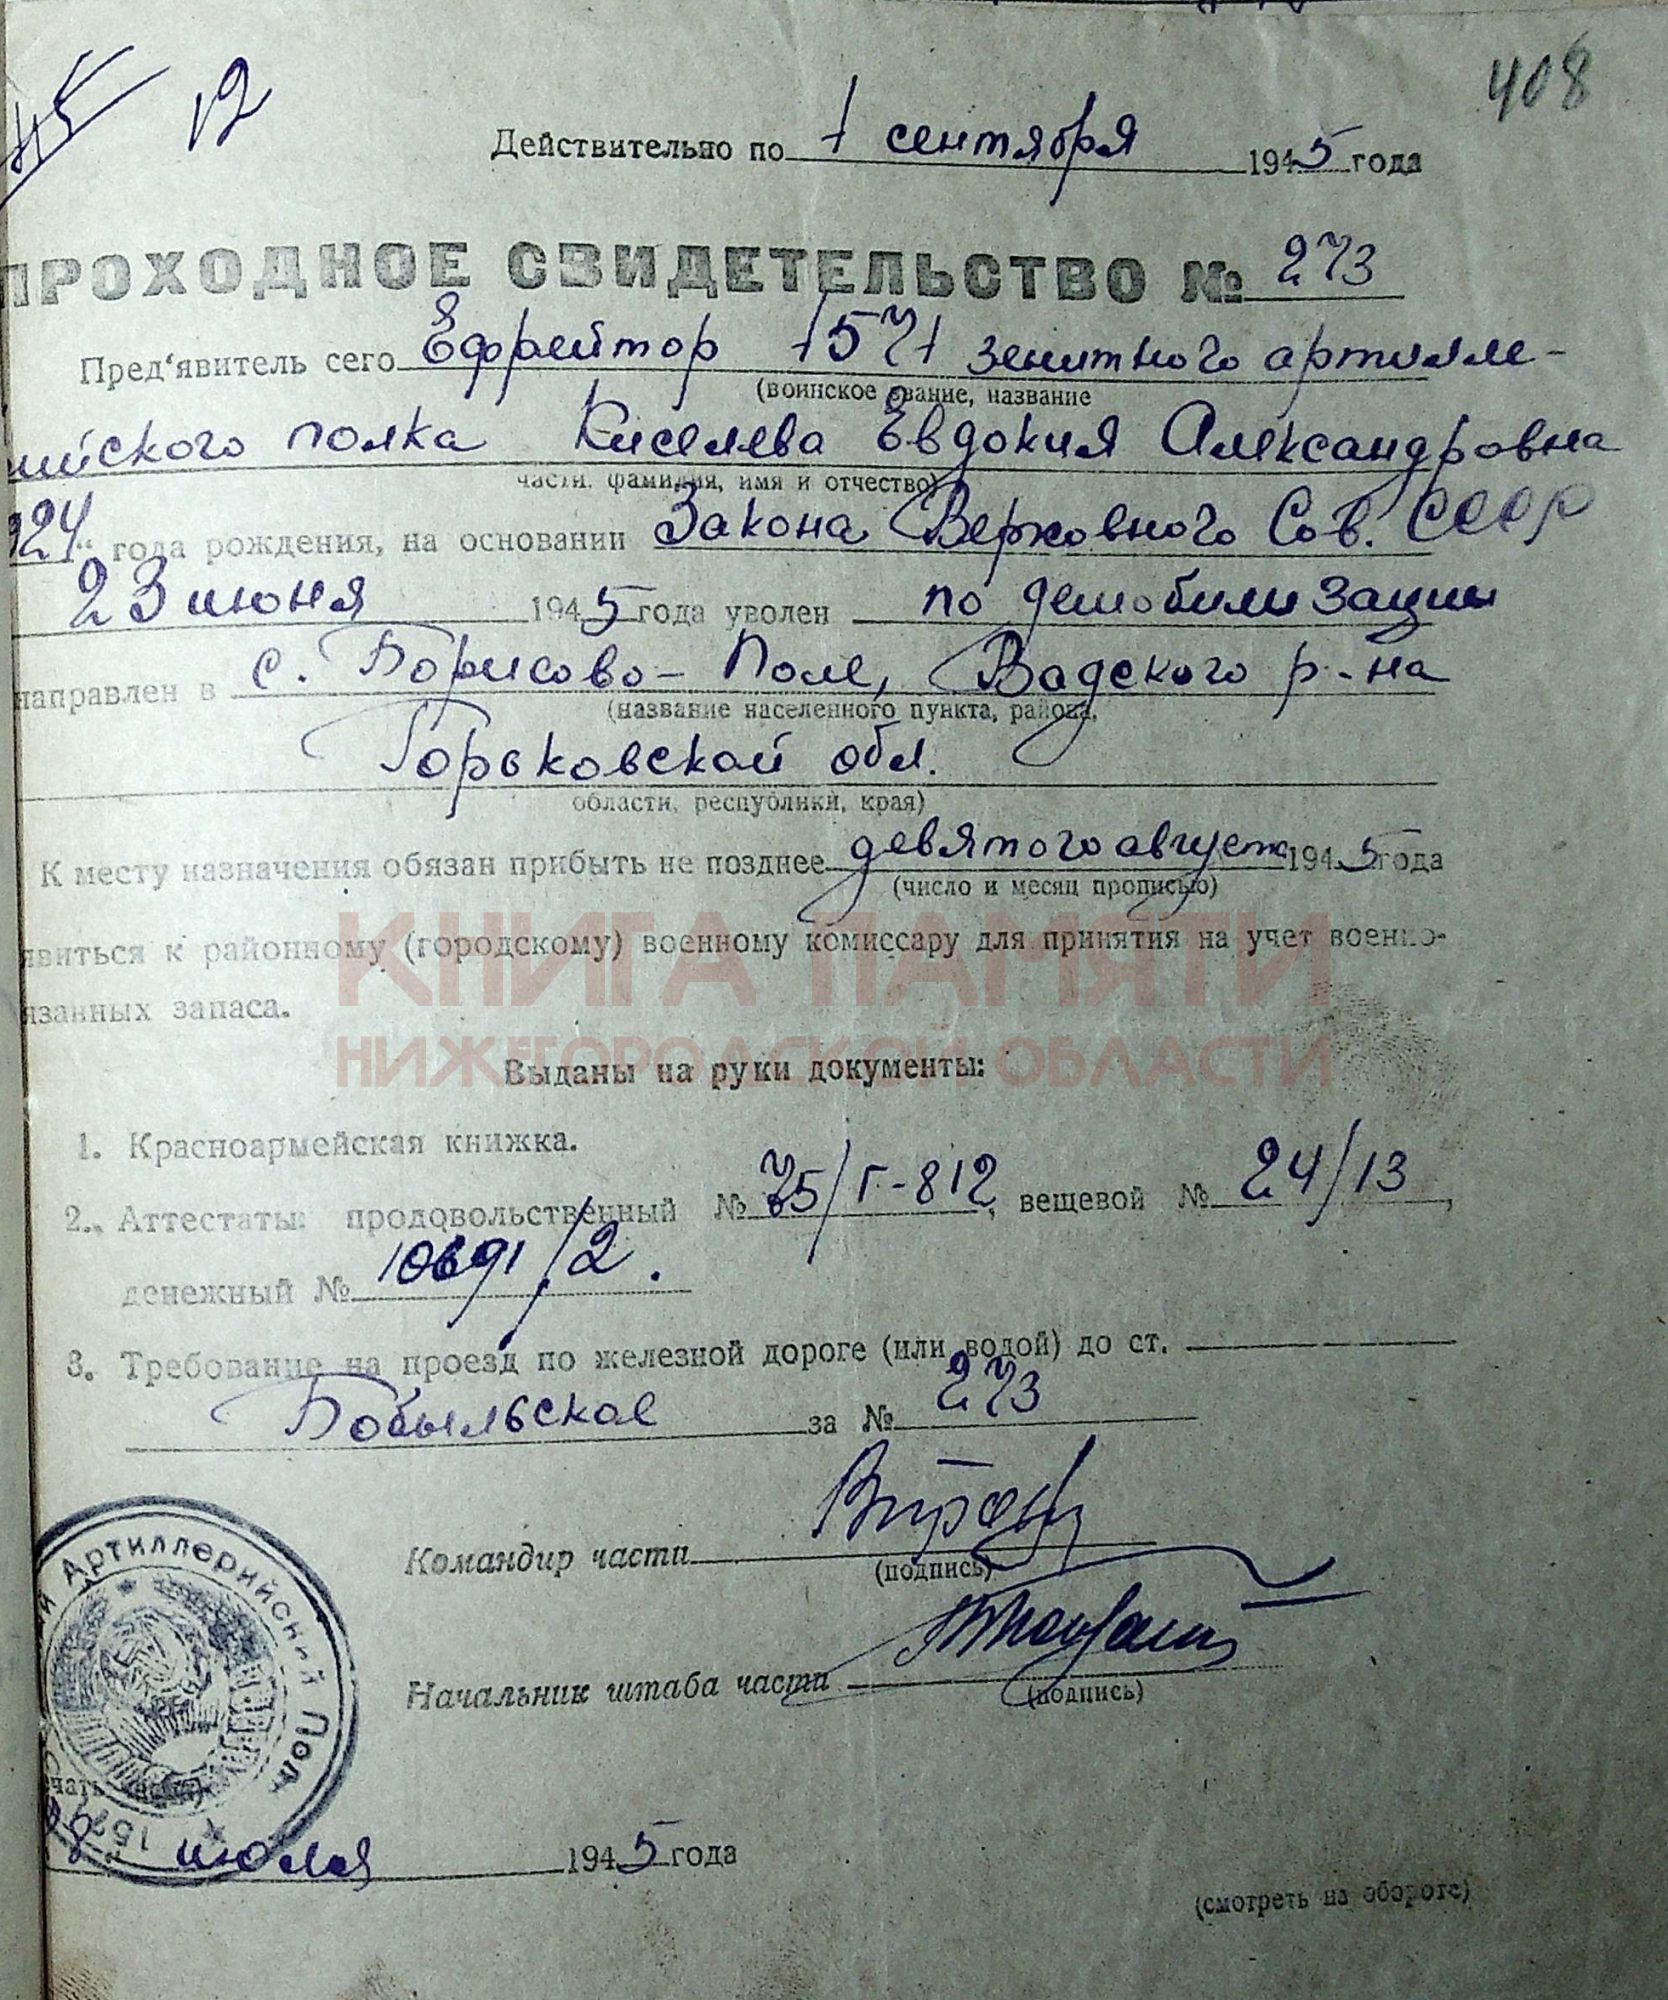 45 12 408
Действительно по 1 сентября 1945 года
ПРОХОДНОЕ СВИДЕТЕЛЬСТВО № 273
Пред'явитель сего Ефрейтор 1571 зенитного артилле-
(воинское звание, название
рийского полка Киселева Евдокия Александровна
части, фамилия, имя и отчество)
924" года рождения, на основании Закона Верховного Сов. СССР
23 июня 1945 года уволен по демобилизации
направлен в с. Борисово-Поле, Вадского р-на
(название населенного пункта, района,
Горьковской обл.
области, республики, края)
К месту назначения обязан прибыть не позднее девятого августа 1945 года
(число и месяц прописью)
явиться к районному (городскому) военному комиссару для принятия на учет военно-
язанных запаса.
КНИГА ПАМЯТИ
НИЖЕГОРОДСКОЙ ОБЛАСТИ
Выданы на руки документы:
1. Красноармейская книжка.
2. Аттестаты: продовольственный № 75/Г-812, вещевой № 24/13,
денежный № 10691/2.
3. Требование на проезд по железной дороге (или водой) до ст.
Бобыльское за № 273
Командир части
(подпись)
Начальник штаба части
(подпись)
Артиллерийский Пол
157
чать части)
8 июля 1945 года
(смотреть на обороте)